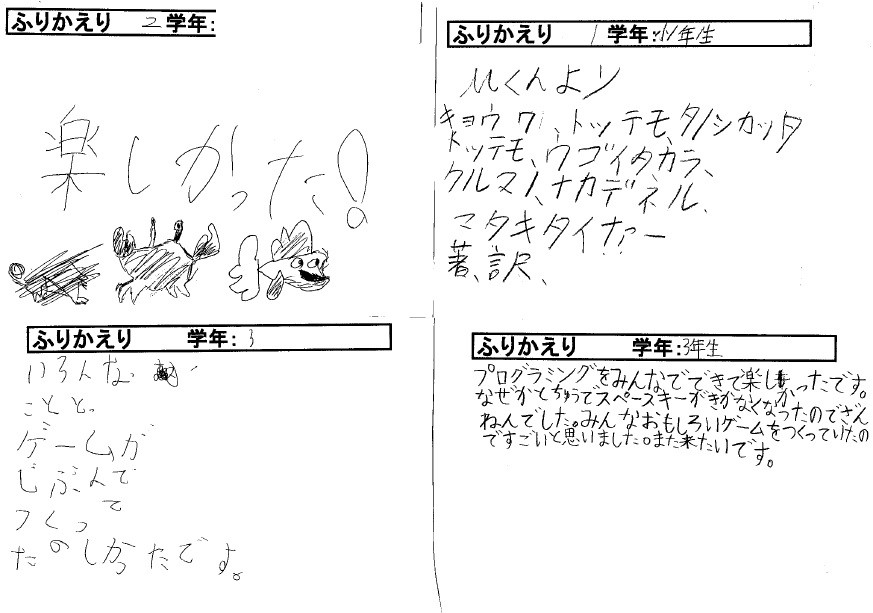 ふりかえり 2 学年:
楽しかった!
ふりかえり 1 学年:小1年生
Mくんより
キョウワ、トッテモ、タノシカッタ
トッテモ、ウゴイタ、カラ、
クルマノ、ナカデ、ネル、
マタキタイナァー
著、訳、
ふりかえり 学年:3
いろんな
ことと、
ゲームが
じぶんで
つくって
たのしかったです。
ふりかえり 学年:3年生
プログラミングをみんなでできて楽しかったです。
なぜかとちゅうでスペースキーがきかなくなったのでざん
ねんでした。みんなおもしろいゲームをつくっていたの
ですごいと思いました。また来たいです。